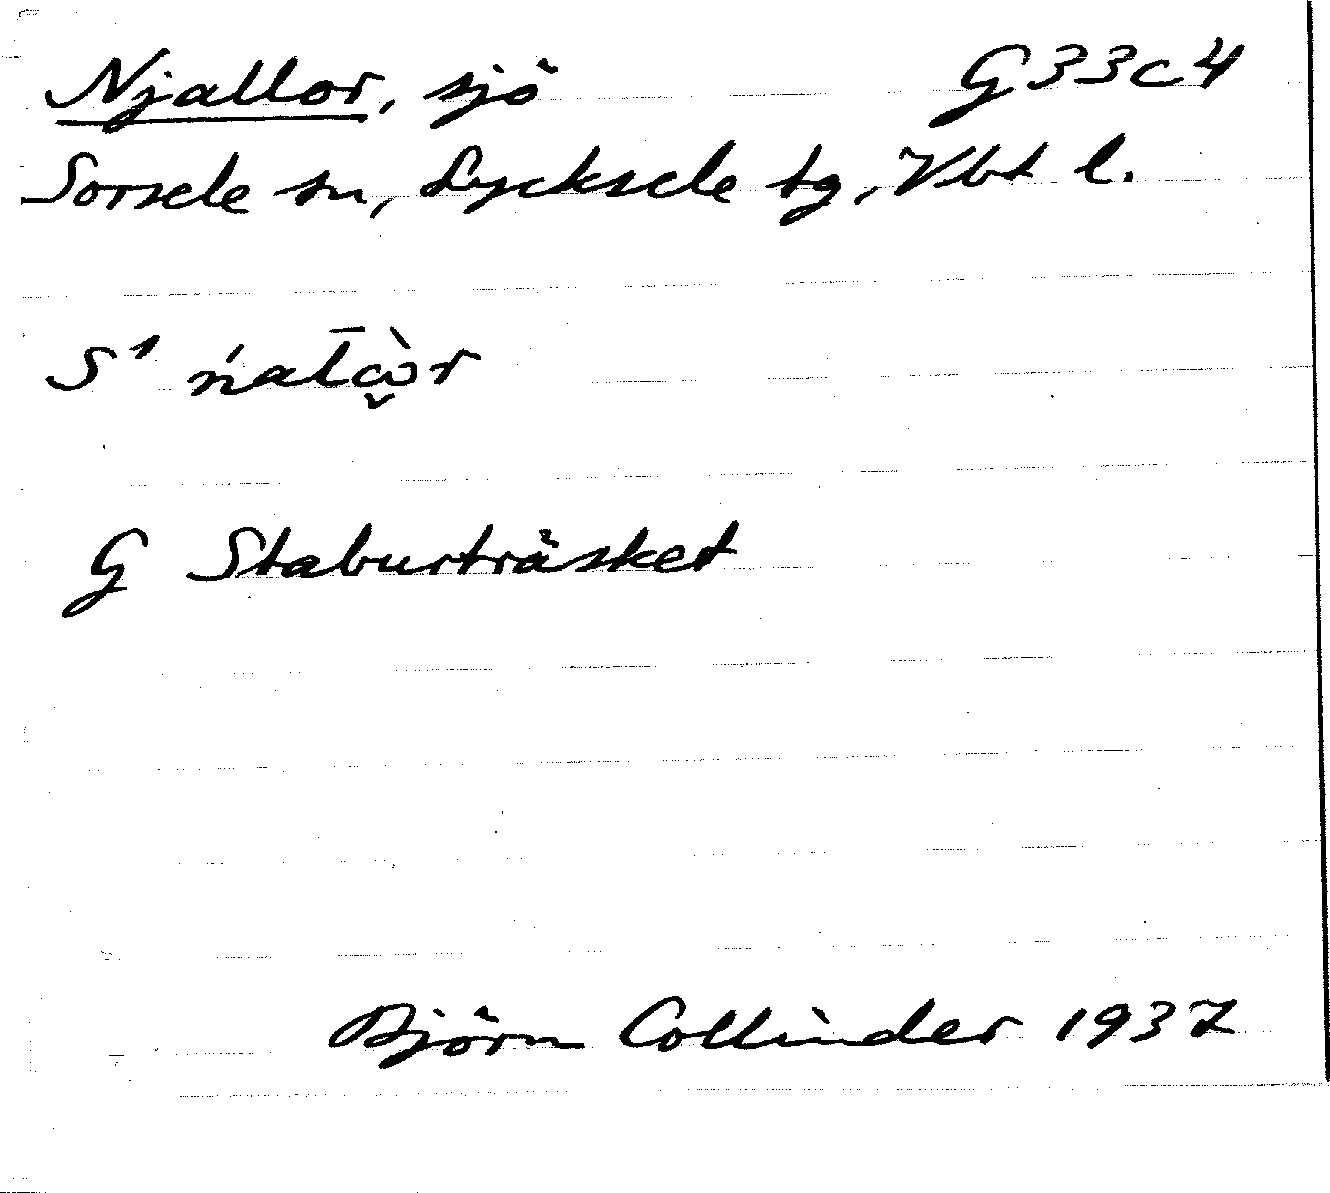 Njallor, sjö G33c4
Sorsele sn, Lycksele tg, Vbt l.
S¹ ńal̄ὼ̬r
G Staburträsket
Björn Collinder 1937